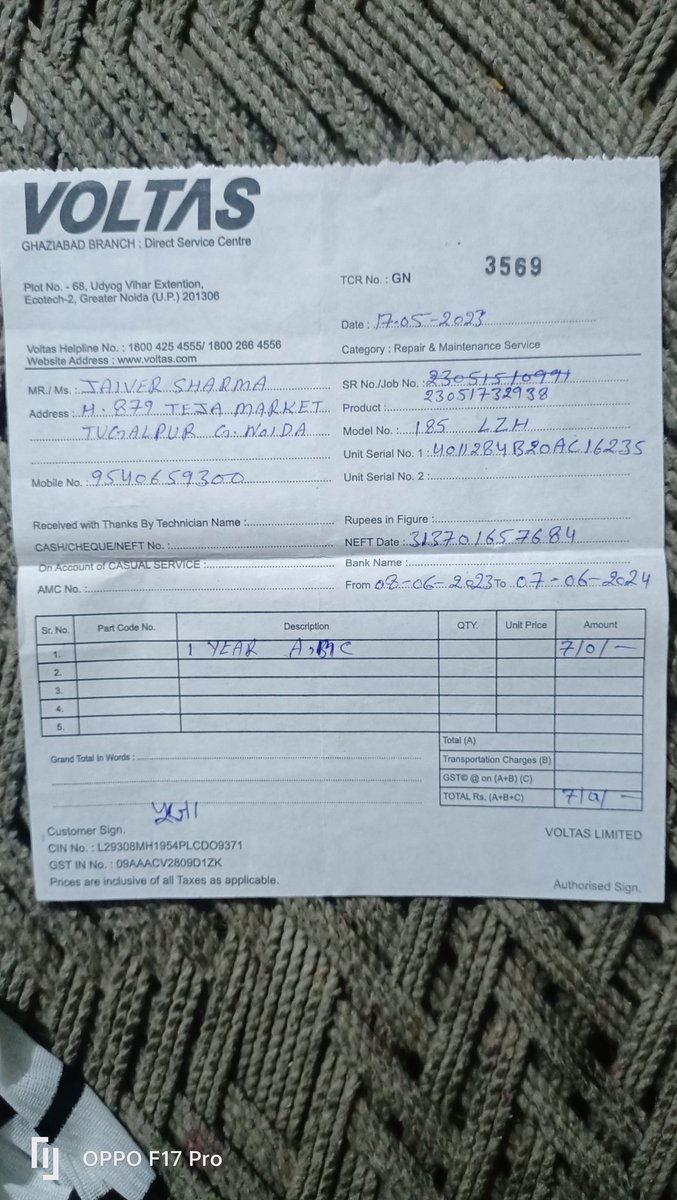 VOLTAS
GHAZIABAD BRANCH : Direct Service Centre
Plot No. - 68, Udyog Vihar Extention,
Ecotech-2, Greater Noida (U.P.) 201306
TCR No. : GN 3569
Date : 17-05-2023
Voltas Helpline No. : 1800 425 4555/ 1800 266 4556
Website Address : www.voltas.com
Category : Repair & Maintenance Service
MR./ Ms. : JAIVER SHARMA
SR No./Job No. : 23051510991
23051732938
Address : H. 879 TEJA MARKET
Product :
TUGALPUR G. NOIDA
Model No. : 185 LZH
Unit Serial No. 1 : 4011284B20AC16235
Mobile No. 9540659300
Unit Serial No. 2 :
Received with Thanks By Technician Name :
Rupees in Figure :
CASH/CHEQUE/NEFT No. :
NEFT Date : 313701657684
On Account of CASUAL SERVICE :
Bank Name :
AMC No. :
From 08-06-2023 To 07-06-2024
Sr. No. Part Code No. Description QTY. Unit Price Amount
1. 1 YEAR A.M.C 710/-
2.
3.
4.
5.
Total (A)
Grand Total In Words :
Transportation Charges (B)
GST© @ on (A+B) (C)
TOTAL Rs. (A+B+C) 710/-
Customer Sign.
VOLTAS LIMITED
CIN No. : L29308MH1954PLCDO9371
GST IN No. : 09AAACV2809D1ZK
Prices are inclusive of all Taxes as applicable.
Authorised Sign.
OPPO F17 Pro